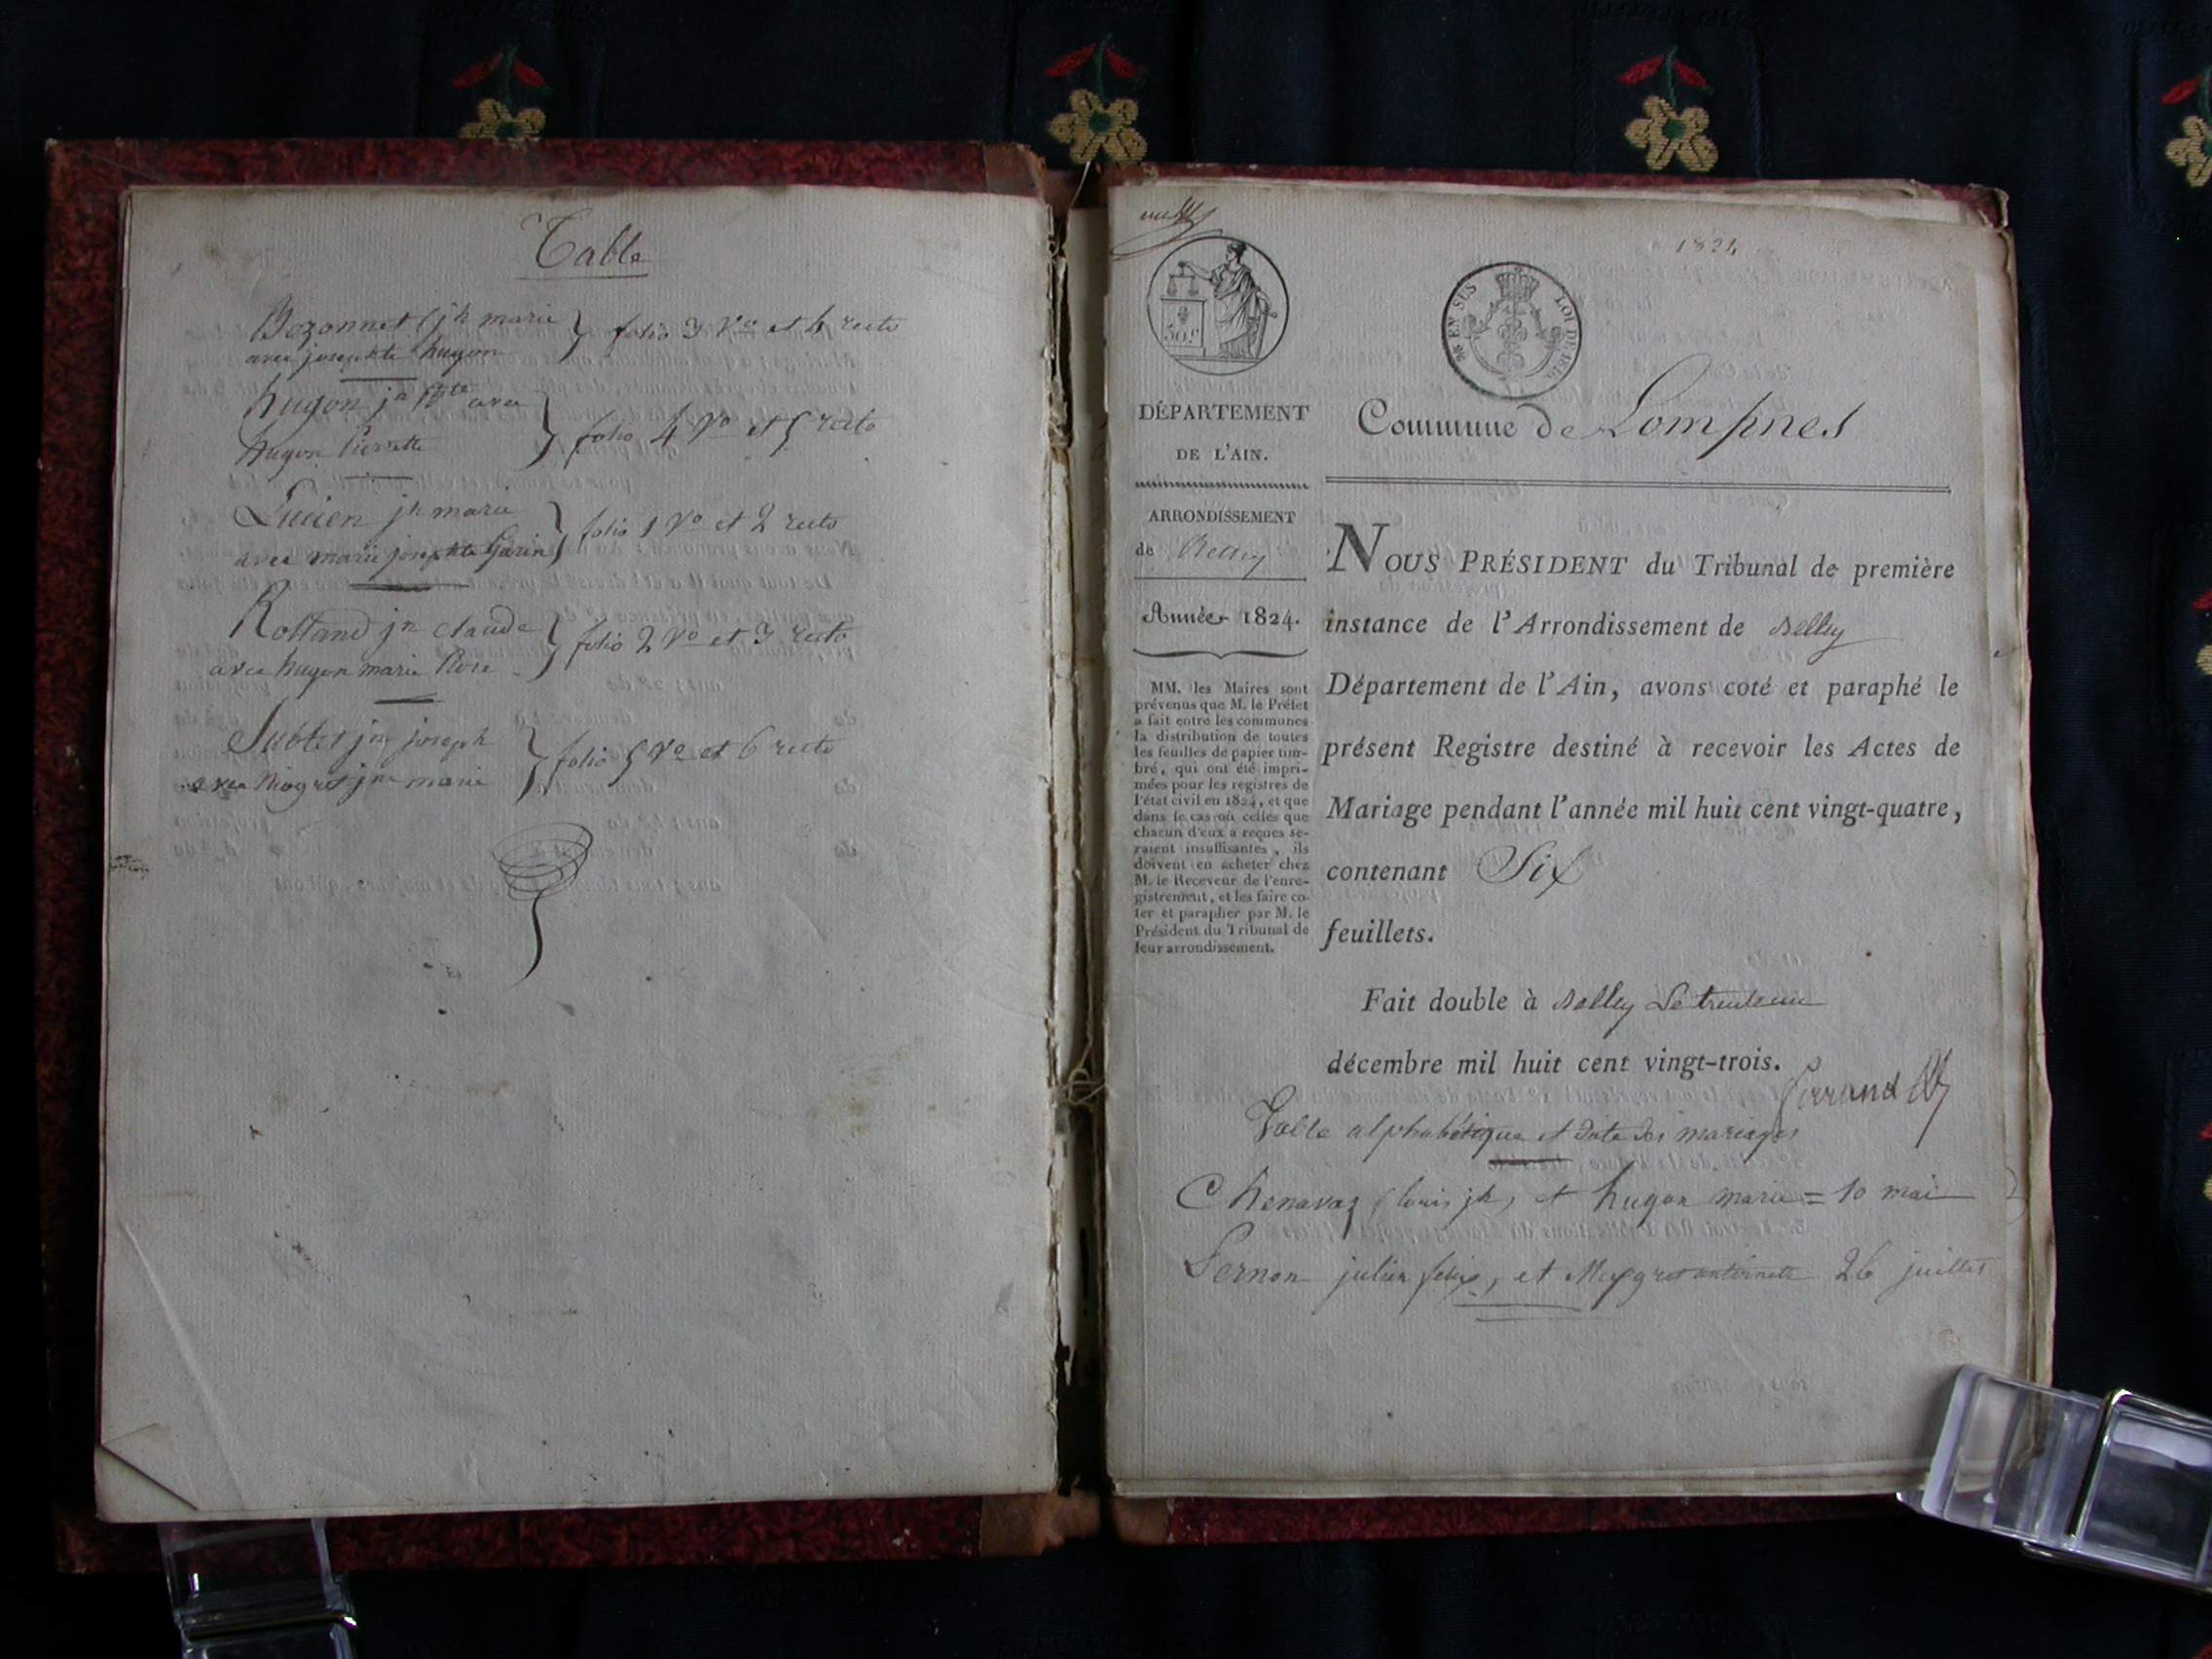 Table
Bozonnet (jh marie
avec josephte hugon
folio 3 Vo et 4 recto
hugon jn Bte avec
hugon Pierrette
folio 4 Vo et 5 recto
Lucien jh marie
avec marie josephte Garin
folio 1 Vo et 2 recto
Rolland jn claude
avec hugon marie Rose
folio 2 Vo et 3 recto
Sublet jn joseph
avec jne marie
folio 5 Vo et 6 recto
1824
50 c
LOI DE 1816
DÉPARTEMENT
DE L'AIN.
ARRONDISSEMENT
de Belley
Année 1824.
MM. les Maires sont
prévenus que M. le Préfet
a fait entre les communes
la distribution de toutes
les feuilles de papier tim-
bré, qui ont été impri-
mées pour les registres de
l'état civil en 1824, et que
dans le cas où celles que
chacun d'eux a reçues se-
raient insuffisantes, ils
doivent en acheter chez
M. le Receveur de l'enre-
gistrement, et les faire co-
ter et parapher par M. le
Président du Tribunal de
leur arrondissement.
Commune de Lompnes
NOUS PRÉSIDENT du Tribunal de première
instance de l'Arrondissement de Belley
Département de l'Ain, avons coté et paraphé le
présent Registre destiné à recevoir les Actes de
Mariage pendant l'année mil huit cent vingt-quatre,
contenant Six
feuillets.
Fait double à Belley Le trente un
décembre mil huit cent vingt-trois.
Table alphabétique et date des mariages
Chenavaz (louis jh) et hugon marie = 10 mai
Pernon julien felix, et antoinette 26 juillet